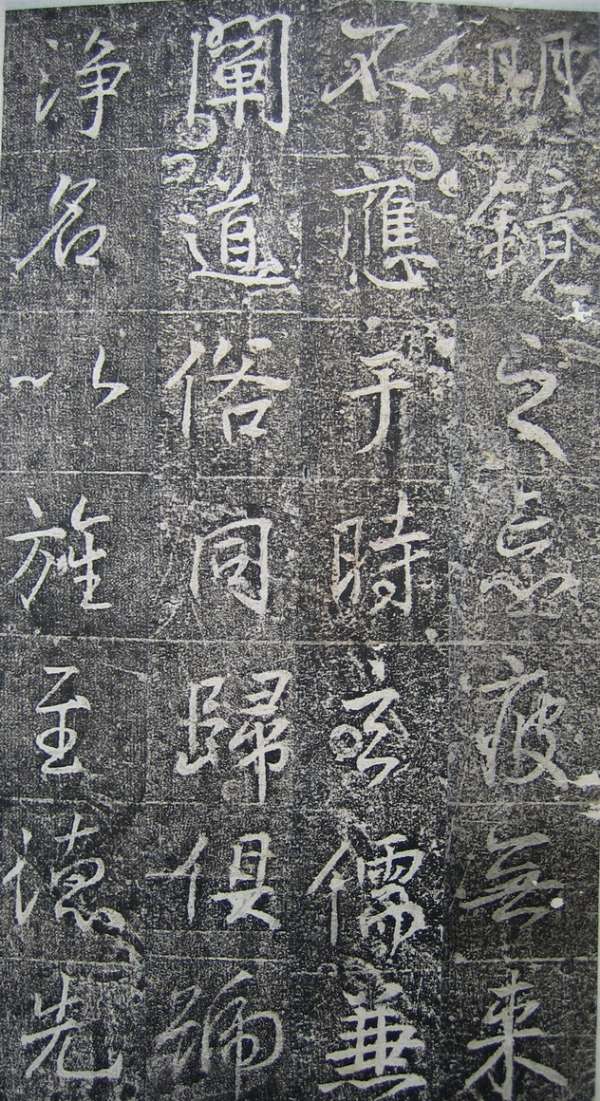 明鏡之忘疲無来
不應于時玄儒兼
闡道俗同歸俱號
浄名以旌至德先